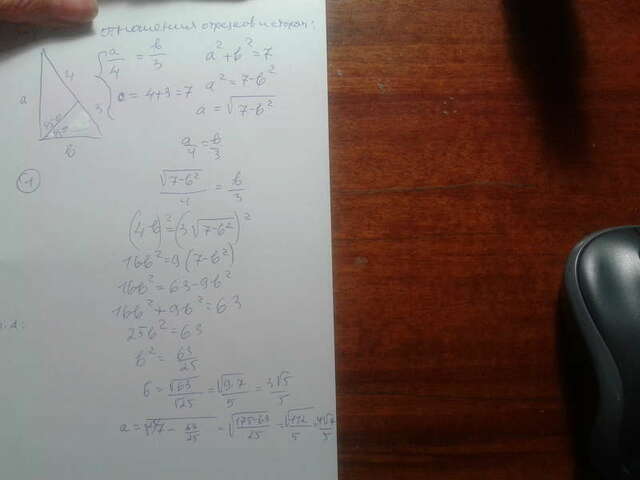 отношения отрезков и сторон:
a/4 = b/3
a² + b² = 7
4
a
3
45°
b
c = 4+3 = 7
a² = 7-b²
a = √(7-b²)
a/4 = b/3
①
√(7-b²)/4 = b/3
(4b)² = (3√(7-b²))²
16b² = 9(7-b²)
16b² = 63-9b²
16b² + 9b² = 63
25b² = 63
b² = 63/25
b = √63/√25 = √(9·7)/5 = 3√5/5
a = √(7 - 63/25) = √((175-63)/25) = √112/5 = 4√7/5